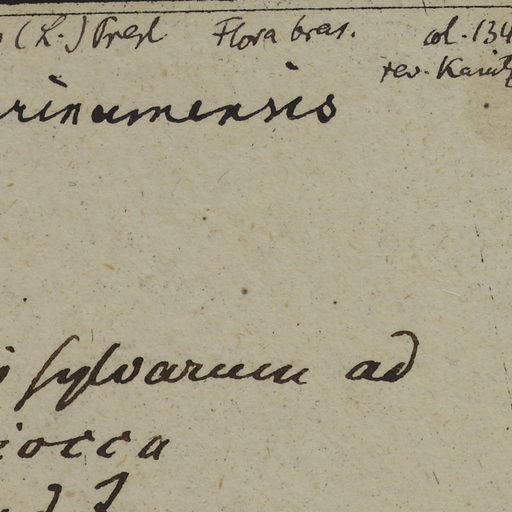 (L.) Presl Flora bras. col. 134
rev. Kanitz
rinamensis
sylvarum ad
iocca